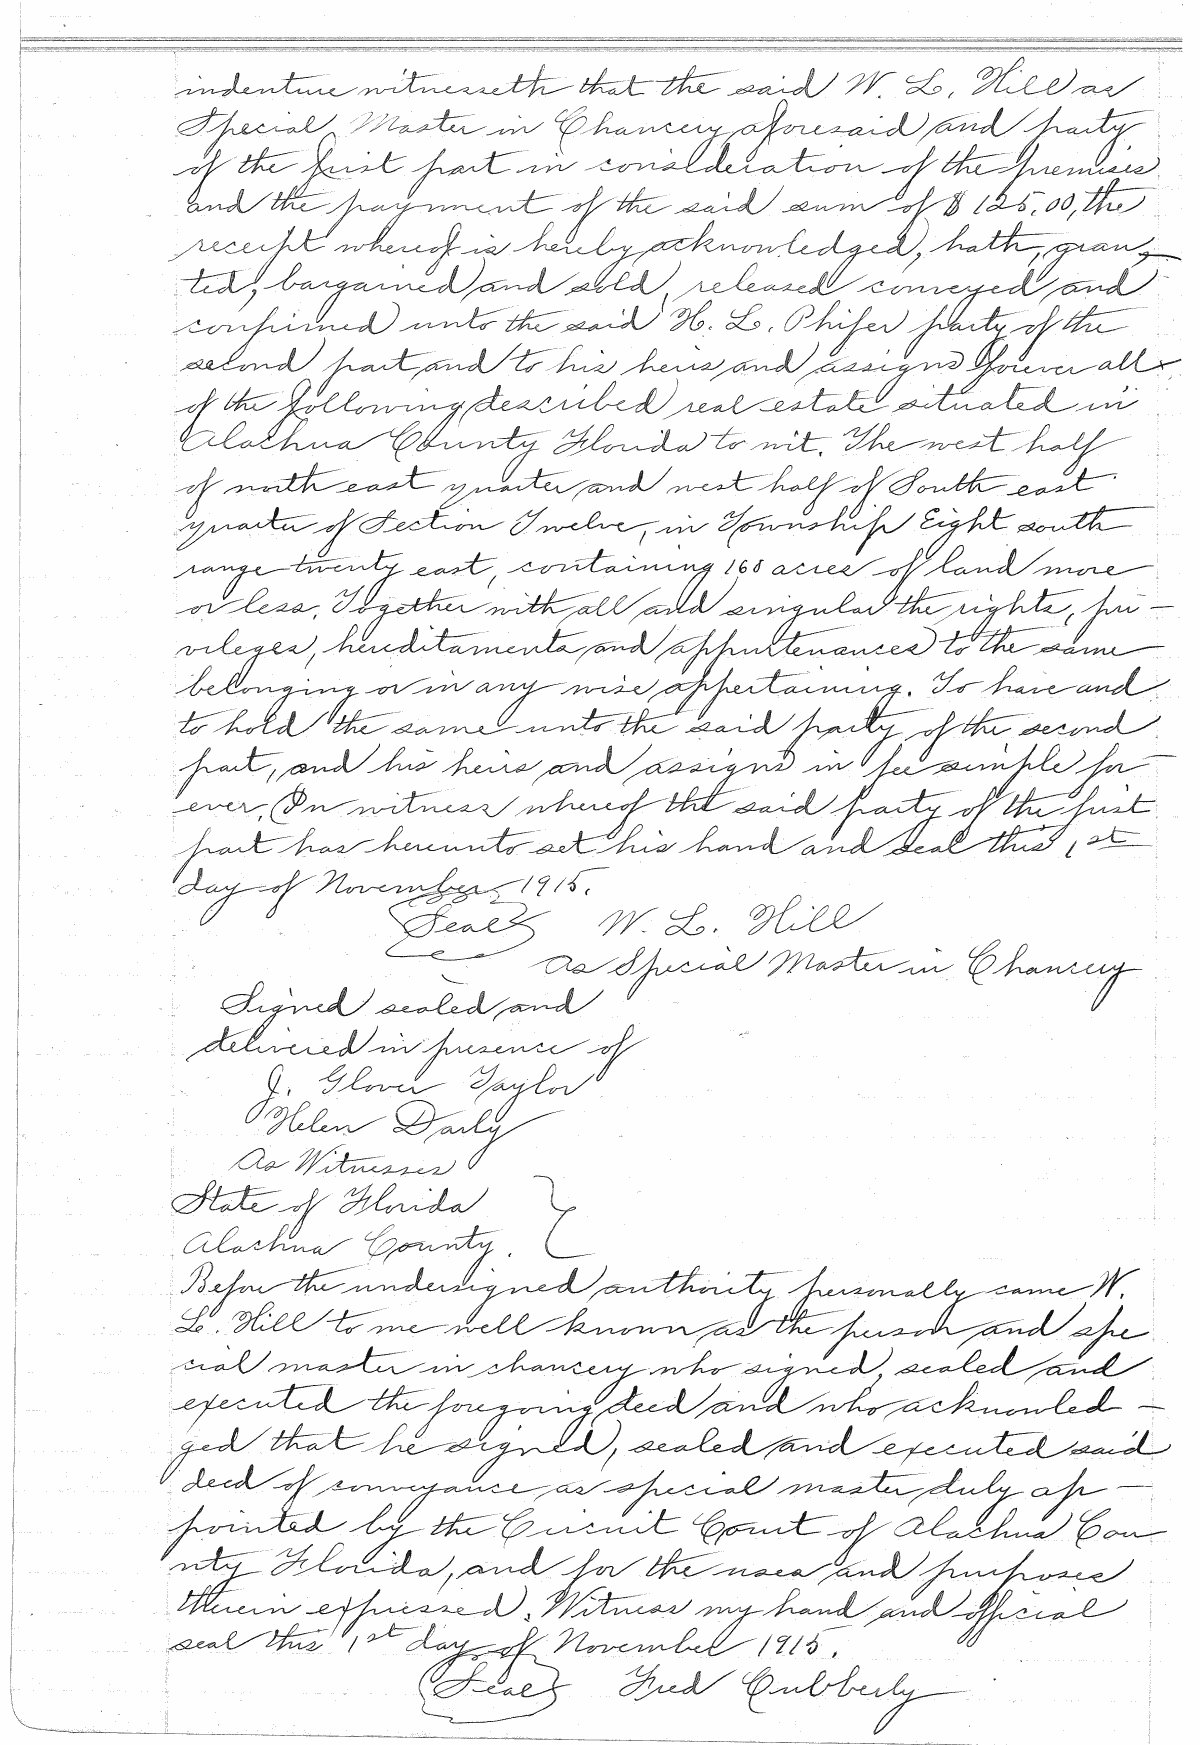 indenture witnesseth that the said W. L. Hill as
Special Master in Chancery aforesaid and party
of the first part in consideration of the premises
and the payment of the said sum of $125.00, the
receipt whereof is hereby acknowledged, hath, gran-
ted, bargained and sold, released conveyed and
confirmed unto the said H. L. Phifer party of the
second part and to his heirs and assigns forever all
of the following described real estate situated in
Alachua County Florida to wit. The west half
of north east quarter and west half of South east
quarter of Section Twelve, in Township Eight south
range twenty east, containing 160 acres of land more
or less. Together with all and singular the rights, pri-
vileges, hereditaments and appurtenances to the same
belonging or in any wise appertaining. To have and
to hold the same unto the said party of the second
part, and his heirs and assigns in fee simple for
ever. In witness whereof the said party of the first
part has hereunto set his hand and seal this 1st
day of November 1915.
Seal W. L. Hill
As Special Master in Chancery
Signed sealed and
delivered in presence of
J. Glover Taylor
Helen Darly
As Witnesses
State of Florida
Alachua County.
Before the undersigned authority personally came W.
L. Hill to me well known as the person and spe
cial master in chancery who signed, sealed and
executed the foregoing deed and who acknowled-
ged that he signed, sealed and executed said
deed of conveyance as special master duly ap-
pointed by the Circuit Court of Alachua Cou
nty Florida, and for the uses and purposes
therein expressed. Witness my hand and official
seal this 1st day of November 1915.
Seal Fred Cubberly